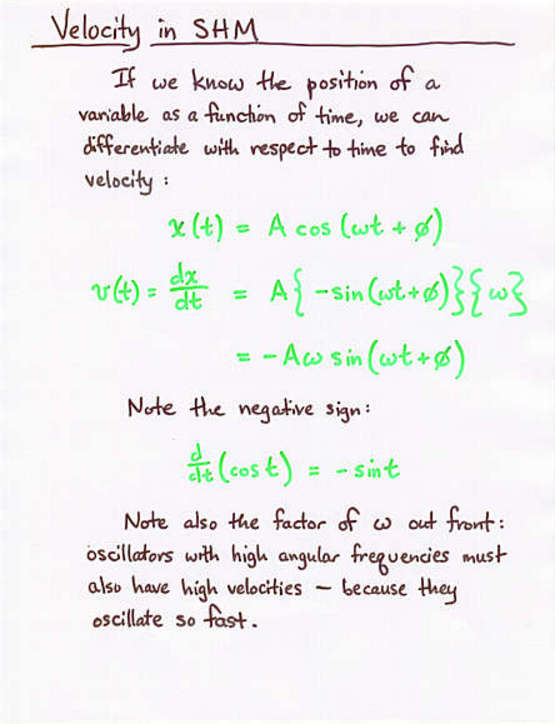 Velocity in SHM
If we know the position of a
variable as a function of time, we can
differentiate with respect to time to find
velocity :
x(t) = A cos (ωt + ϕ)
v(t) = dx/dt = A{ -sin(ωt+ϕ)}{ω}
= - Aω sin(ωt+ϕ)
Note the negative sign:
d/dt (cos t) = - sin t
Note also the factor of ω out front:
oscillators with high angular frequencies must
also have high velocities — because they
oscillate so fast.